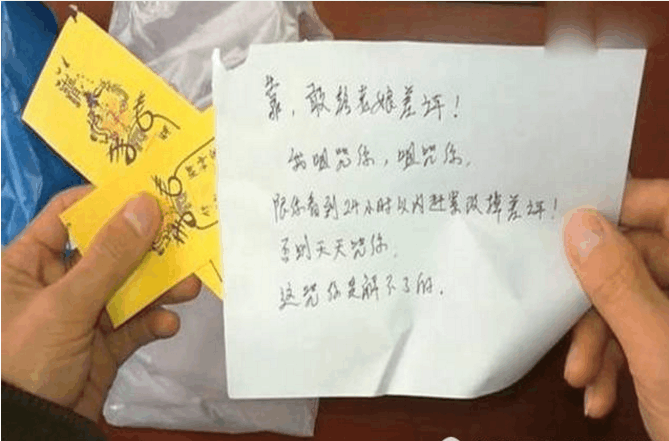 靠，敢给老娘差评！
我咀咒你，咀咒你，
限你看到24小时以内赶紧改掉差评！
否则天天咒你，
这咒你是解不了的。